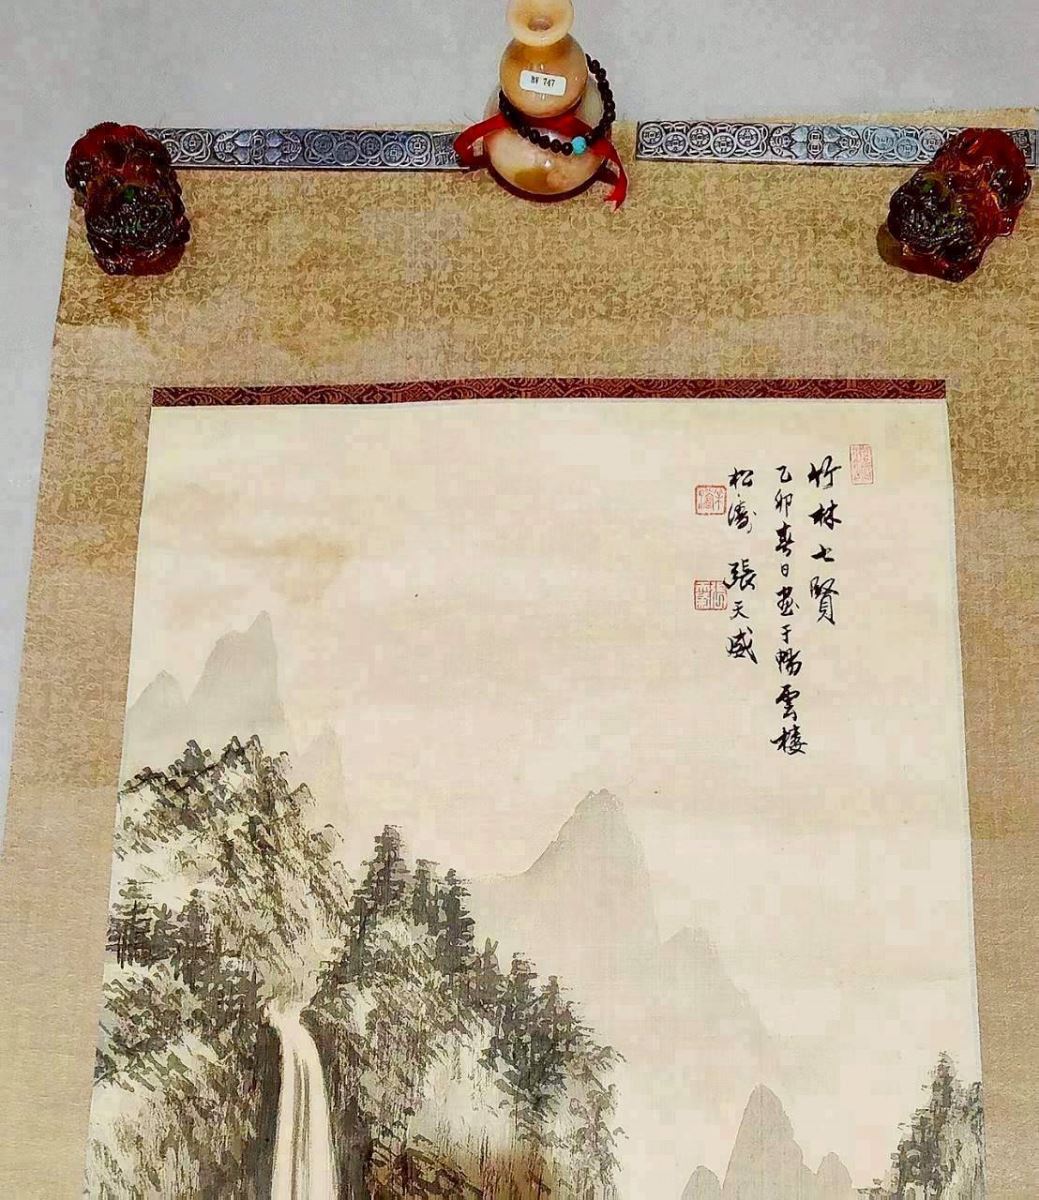 竹林七賢
乙卯春日畫于暢雲樓
松濤 張天威
747